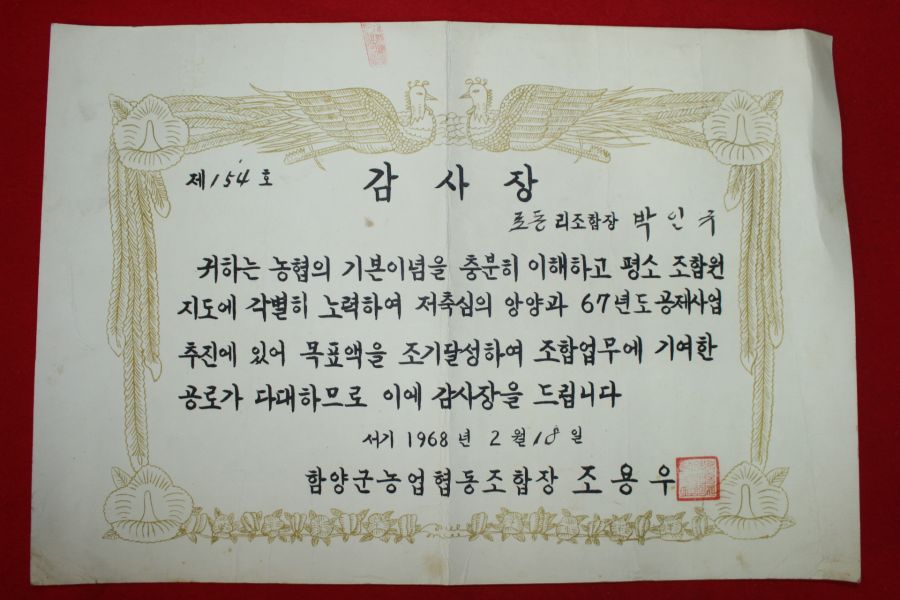 제 154 호
감 사 장
리조합장 박 인
귀하는 농협의 기본이념을 충분히 이해하고 평소 조합원
지도에 각별히 노력하여 저축심의 앙양과 67년도 공제사업
추진에 있어 목표액을 조기달성하여 조합업무에 기여한
공로가 다대하므로 이에 감사장을 드립니다
서기 1968 년 2 월 18 일
함양군농업협동조합장 조 용 우